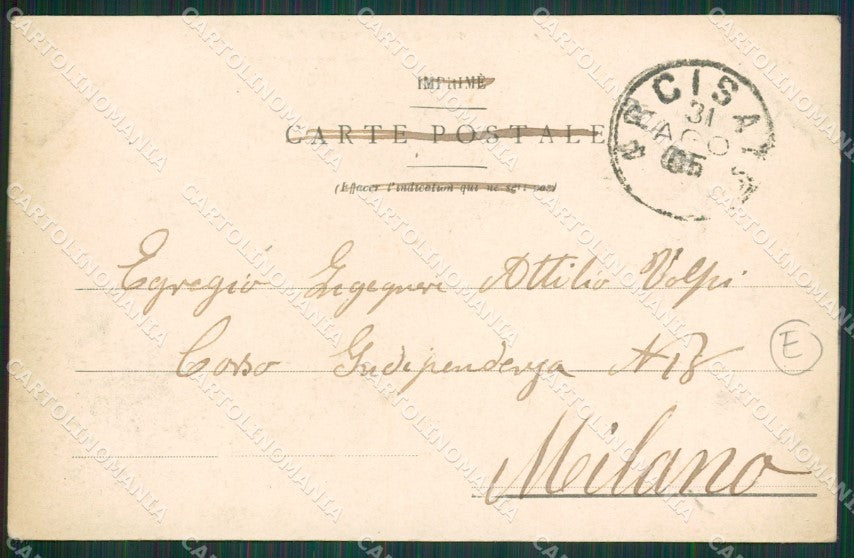 IMPRIMÉ
CARTE POSTALE
(Effacer l'indication qui ne sert pas)
CISA
31
AGO
05
Egregio Ingegnere Attilio Volpi
Corso Indipendenza N 18
Milano
E
CARTOLINOMANIA